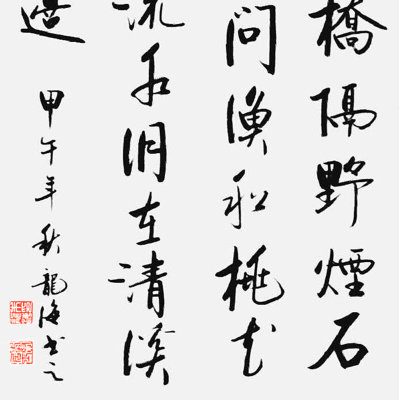 橋隔野煙石
問漁船桃花
流水洞在清溪
邊
甲午年秋龍海書之